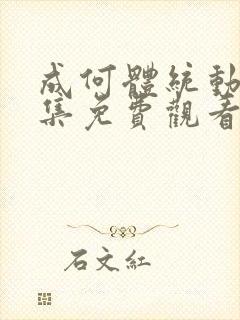 成何體統動
集免費觀看
石文紅